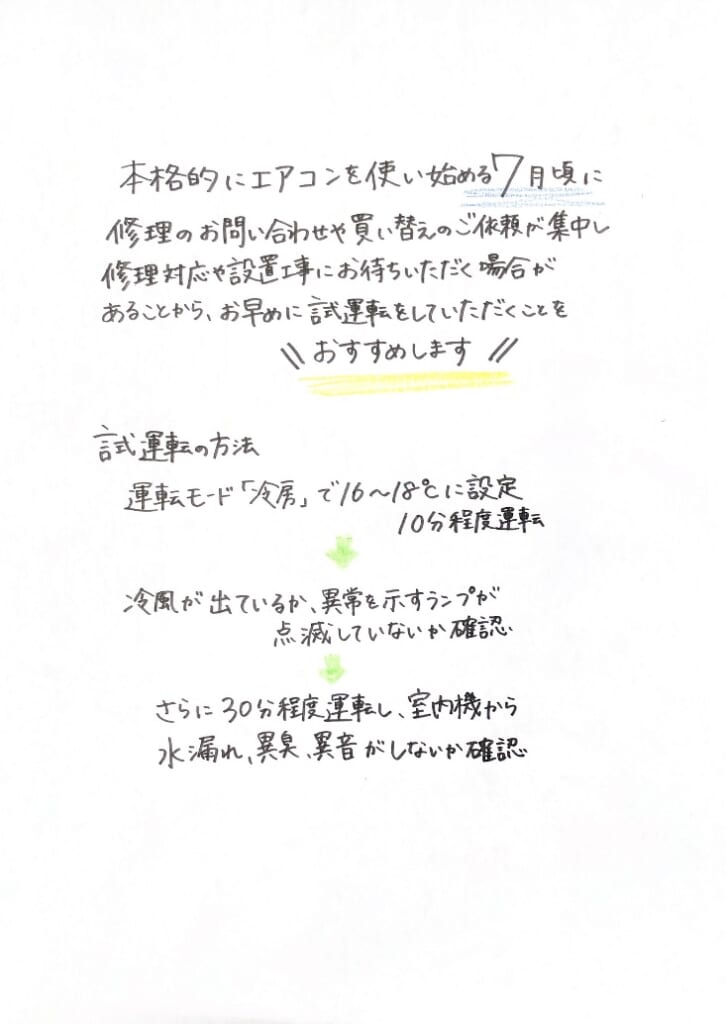 本格的にエアコンを使い始める7月頃に
修理のお問い合わせや買い替えのご依頼が集中し
修理対応や設置工事にお待ちいただく場合が
あることから、お早めに試運転をしていただくことを
\\ おすすめします //
試運転の方法
運転モード「冷房」で16〜18℃に設定
10分程度運転
冷風が出ているか、異常を示すランプが
点滅していないか確認
さらに30分程度運転し、室内機から
水漏れ、異臭、異音がしないか確認